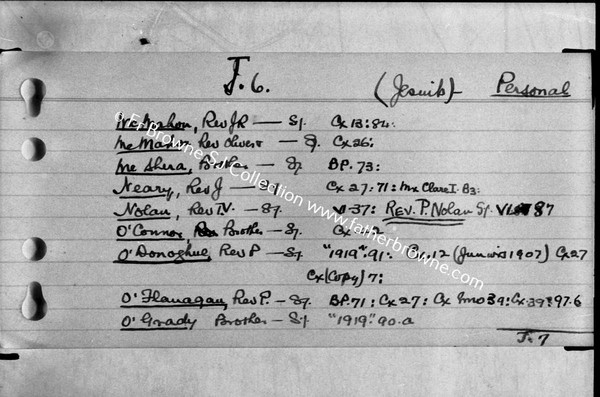 J.6. (Jesuits) Personal
McMahon, Rev JR — SJ. Cx 13:84:
Rev Oliver — SJ. Cx 26:
McShera, Brother — SJ BP. 73:
Neary, Rev J — SJ Cx 27:71: Mx Clare I. 83:
Nolan, Rev TV. — SJ. 37: REV. P. Nolan SJ. 87
O'Connor Brother — SJ.
O'Donoghue Rev P — SJ. "1919".91: 12 (Juniors 1907) Cx 27
Cx (Copy) 7:
O'Flanagan, Rev P. — SJ. BP. 71: Cx 27: Cx Imo 39: Cx 39: 97.6
O'Grady Brother — SJ. "1919". 90.a
J.7
© Fr Browne SJ Collection www.fatherbrowne.com